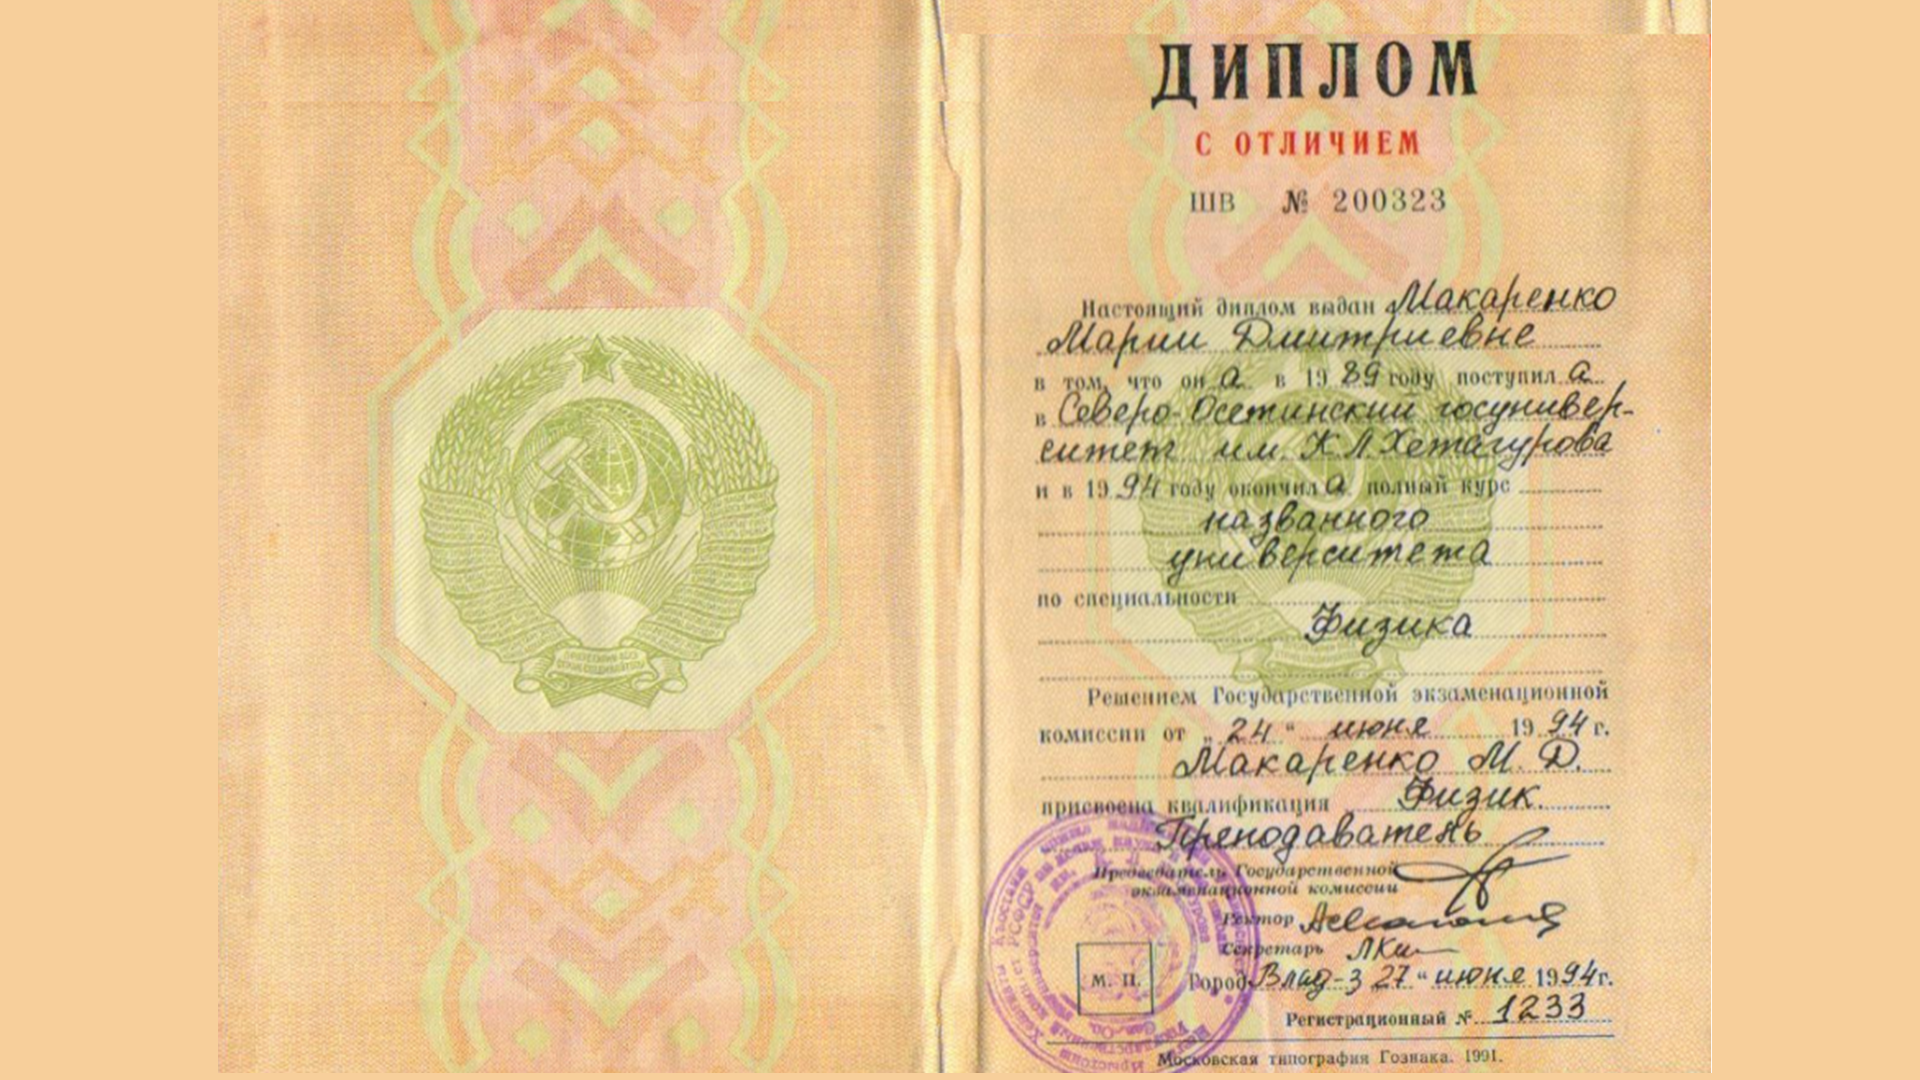 ДИПЛОМ
С ОТЛИЧИЕМ
ШВ № 200323
Настоящий диплом выдан Макаренко
Марии Дмитриевне
в том, что он а в 19 89 году поступил а
в Северо-Осетинский госунивер-
ситет им. К.Л.Хетагурова
и в 19 94 году окончил а полный курс
названного
университета
по специальности
Физика
Решением Государственной экзаменационной
комиссии от „ 24 “ июня 19 94 г.
Макаренко М. Д.
присвоена квалификация Физик.
Преподаватель
Председатель Государственной
экзаменационной комиссии
Ректор
Секретарь
М. П.
Город Влад-з 27 “ июня 1994 г.
Регистрационный № 1233
Московская типография Гознака. 1991.